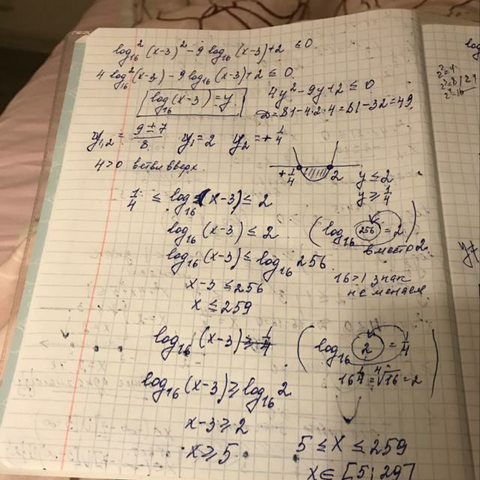 log₁₆² (x-3)² - 9 log₁₆ (x-3) + 2 ≤ 0
4 log₁₆² (x-3) - 9 log₁₆ (x-3) + 2 ≤ 0
log₁₆ (x-3) = y
4y² - 9y + 2 ≤ 0
D = 81 - 4·2·4 = 81 - 32 = 49
y₁,₂ = (9 ± 7)/8 y₁ = 2 y₂ = + 1/4
4 > 0 ветви вверх
+ 1/4 2
y ≤ 2
y ≥ 1/4
1/4 ≤ log₁₆ (x-3) ≤ 2
log₁₆ (x-3) ≤ 2
(log₁₆ 256 = 2)
вместо 2
log₁₆ (x-3) ≤ log₁₆ 256
16 > 1 знак
не меняем
x-3 ≤ 256
x ≤ 259
log₁₆ (x-3) ≥ 1/4
(log₁₆ 2 = 1/4)
16^¼ = ⁴√16 = 2
log₁₆ (x-3) ≥ log₁₆ 2
x-3 ≥ 2
x ≥ 5
5 ≤ x ≤ 259
x ∈ [5; 29]